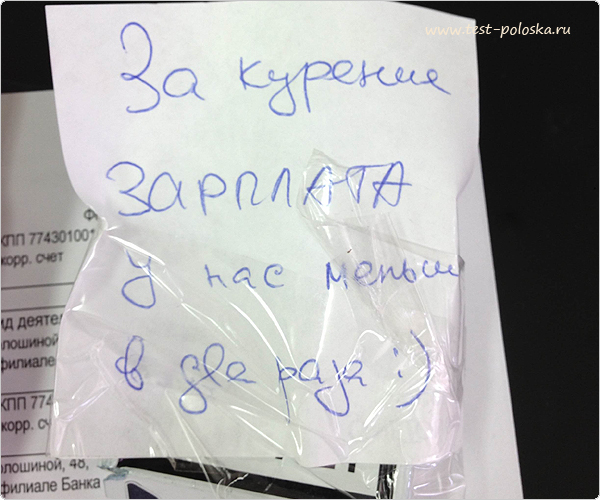 www.test-poloska.ru
За курение
ЗАРПЛАТА
у нас меньш
в два раза :)
КПП 774301001
корр. счет
ид деятел
олошиной
филиале
КПП 774
корр. сч
олошиной, 48,
филиале Банка